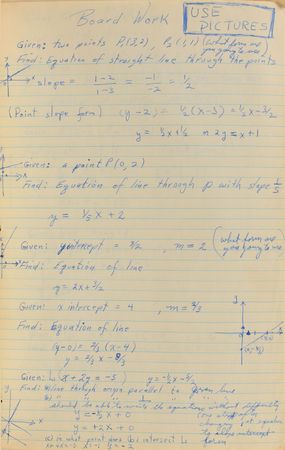 Board Work
USE
PICTURES
Given: two points P₁(3,2), P₂(1,1) (what form are
you going to use)
Find: Equation of straight line through the points
slope = 1-2/1-3 = -1/-2 = 1/2
(Point slope form) (y-2) = 1/2(x-3) = 1/2x-3/2
y = 1/2x+1/2 or 2y=x+1
Given: a point P(0,2)
Find: Equation of line through P with slope 1/5
y = 1/5x + 2
Given: y intercept = 3/2, m = 2 (what form are
you going to use)
Find: Equation of line
y = 2x+3/2
Given: x intercept = 4, m = 2/3
Find: Equation of line
(y-0) = 2/3(x-4)
y = 2/3x - 8/3
Given: L: x+2y=-5) y=-1/2x-5/2
Find: (1) line through origin parallel to given line
should be able to write the equations without difficulty
y = -1/2x + 0
y = x + 0
(a) in what point does (b) intersect L